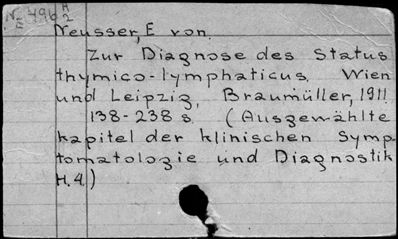 Neusser, E von.
Zur Diagnose des Status
thymico-lymphaticus. Wien
und Leipzig, Braumüller, 1911.
138-238 s. (Ausgewählte
kapitel der klinischen Symp-
tomatologie und Diagnostik
H. 4.)